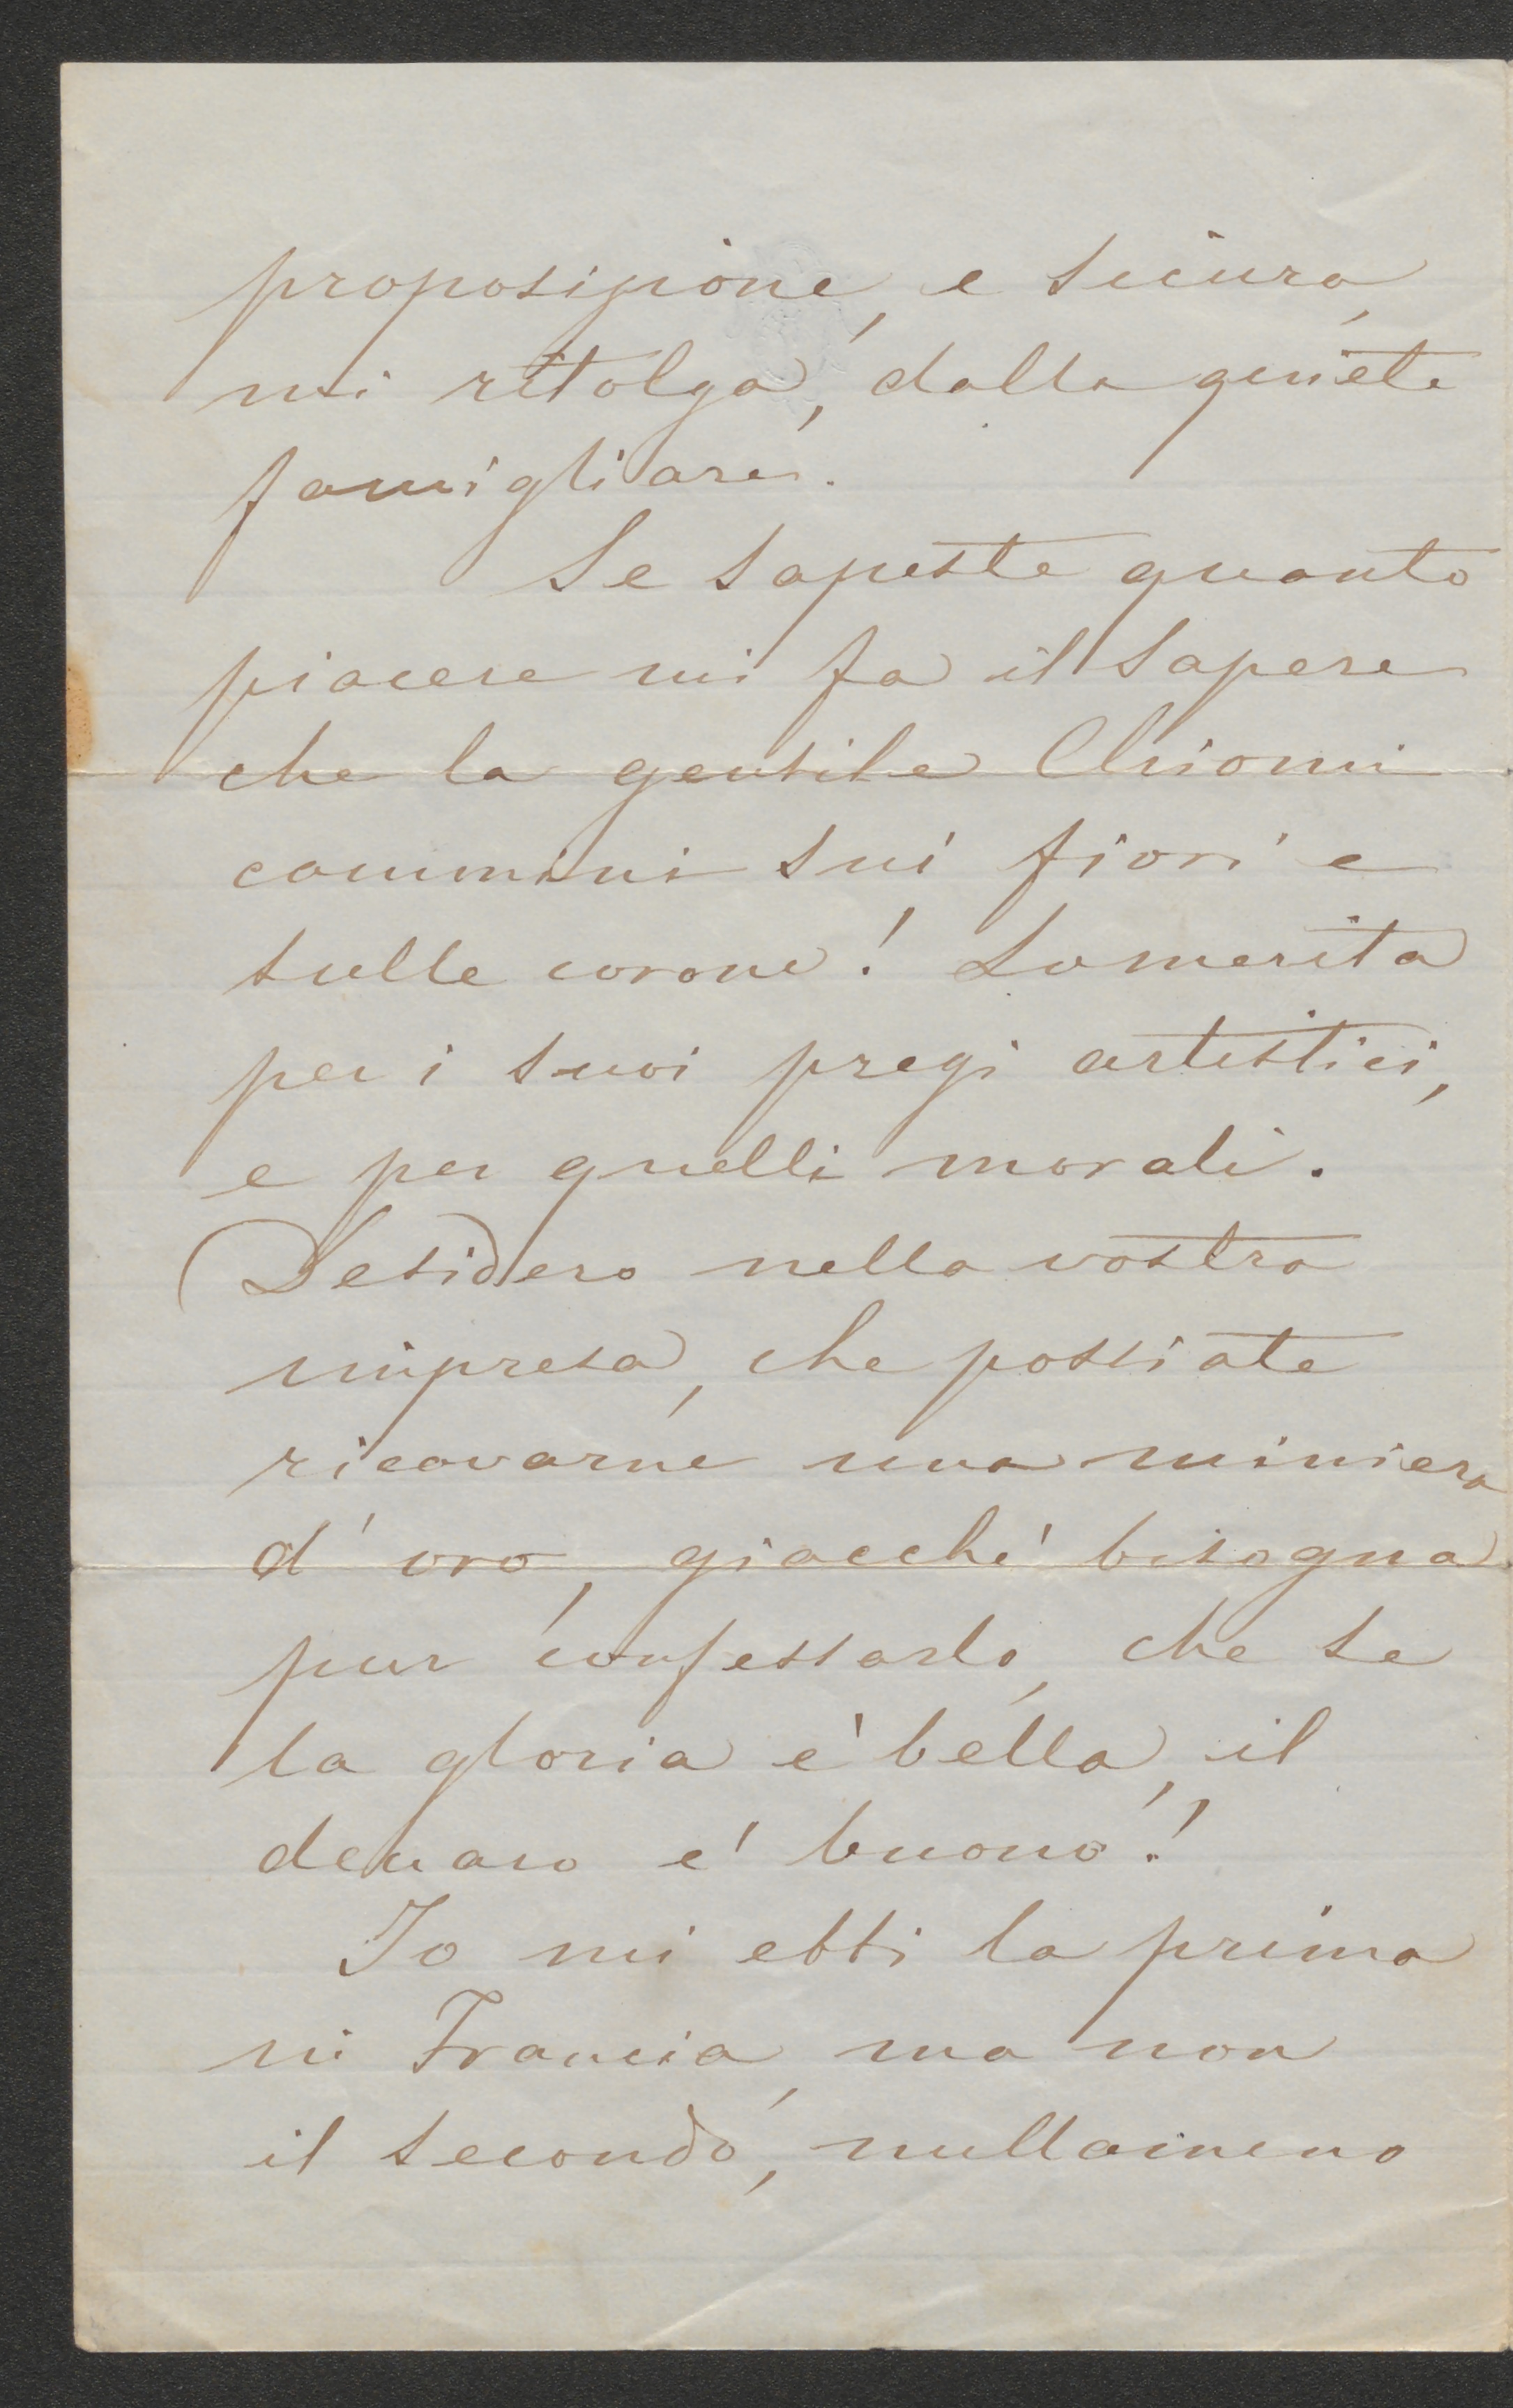 proposizione, e sicura,
mi ritolga, dalla quiete
famigliare.
Se sapeste quanto
piacere mi fa il sapere
che la gentile Chiomi
cammini sui fiori e
sulle corone! Lo merita
per i suoi pregi artistici,
e per quelli morali.
Desidero nella vostra
impresa, che possiate
ricavarne una miniera
d'oro, giacchè bisogna
pur confessarlo, che se
la gloria è bella, il
denaro e' buono!
Io mi ebbi la prima
in Francia, ma non
il secondo, nullameno